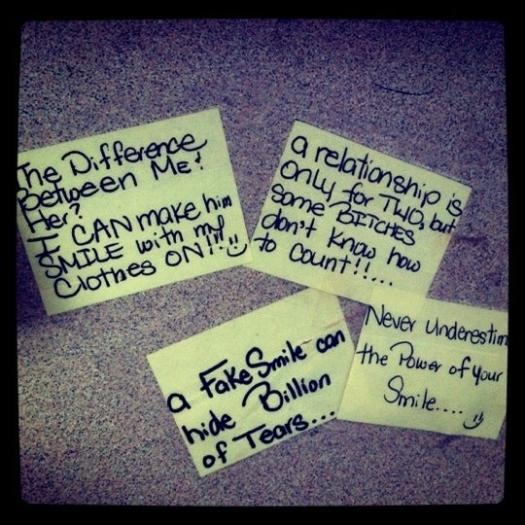 The Difference
Between Me?
Her?
I CAN make him
SMILE with my
Clothes ON!!!
a relationship is
only for TWO, but
some BITCHES
don't know how
to count!!...
a Fake Smile can
hide Billion
of Tears...
Never Underestim
the Power of your
Smile....